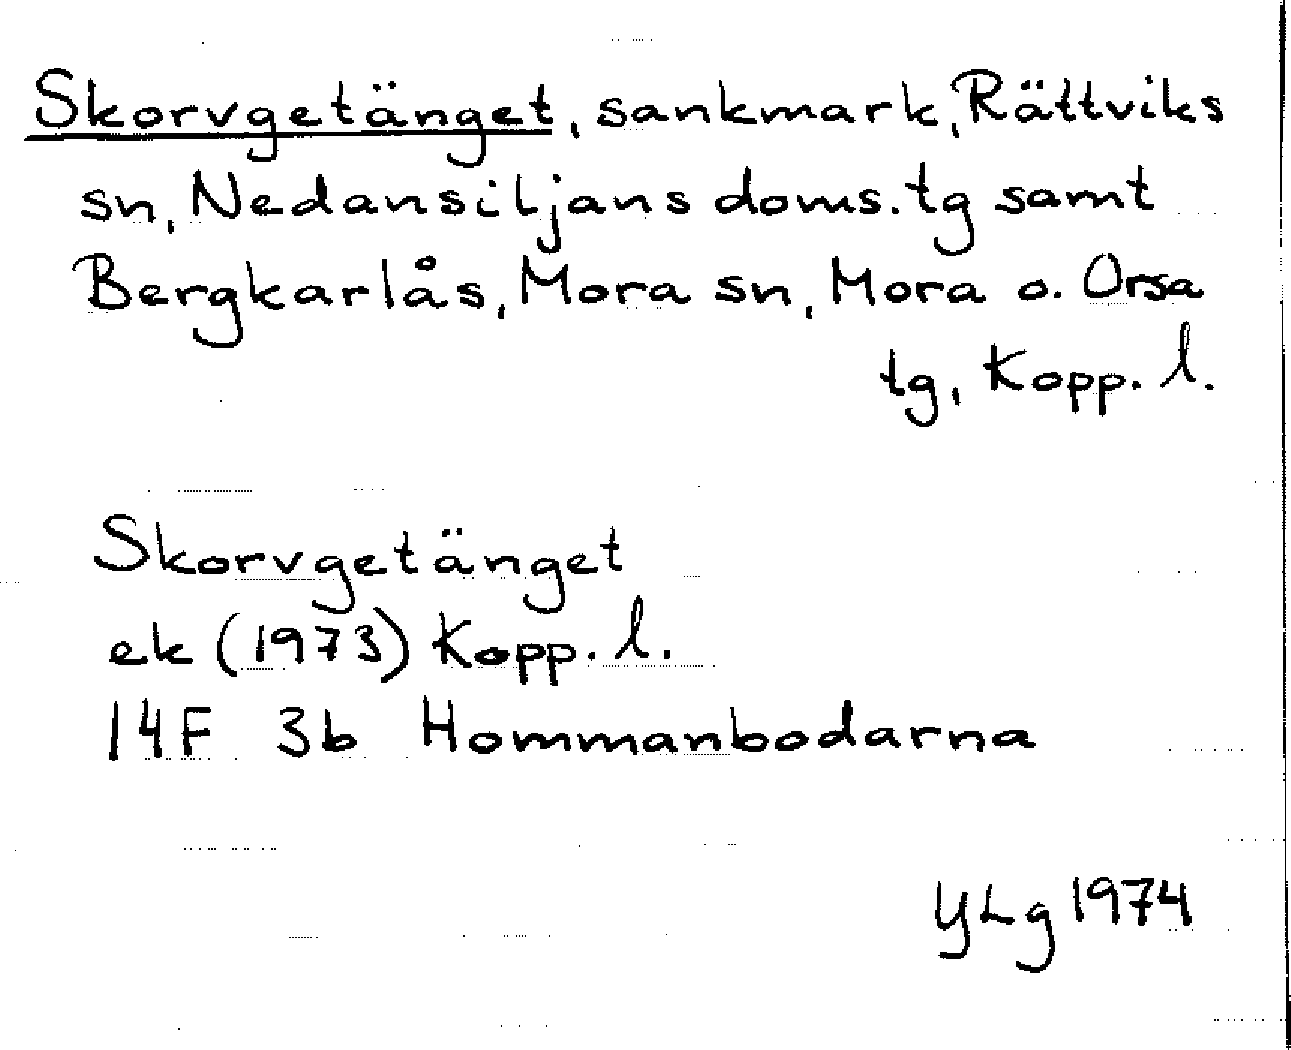 Skorvgetänget, sankmark, Rättviks
sn, Nedansiljans doms.tg samt
Bergkarlås, Mora sn, Mora o. Orsa
tg, Kopp. l.
Skorvgetänget
ek (1973) Kopp. l.
14F 3b Hommanbodarna
YLg 1974